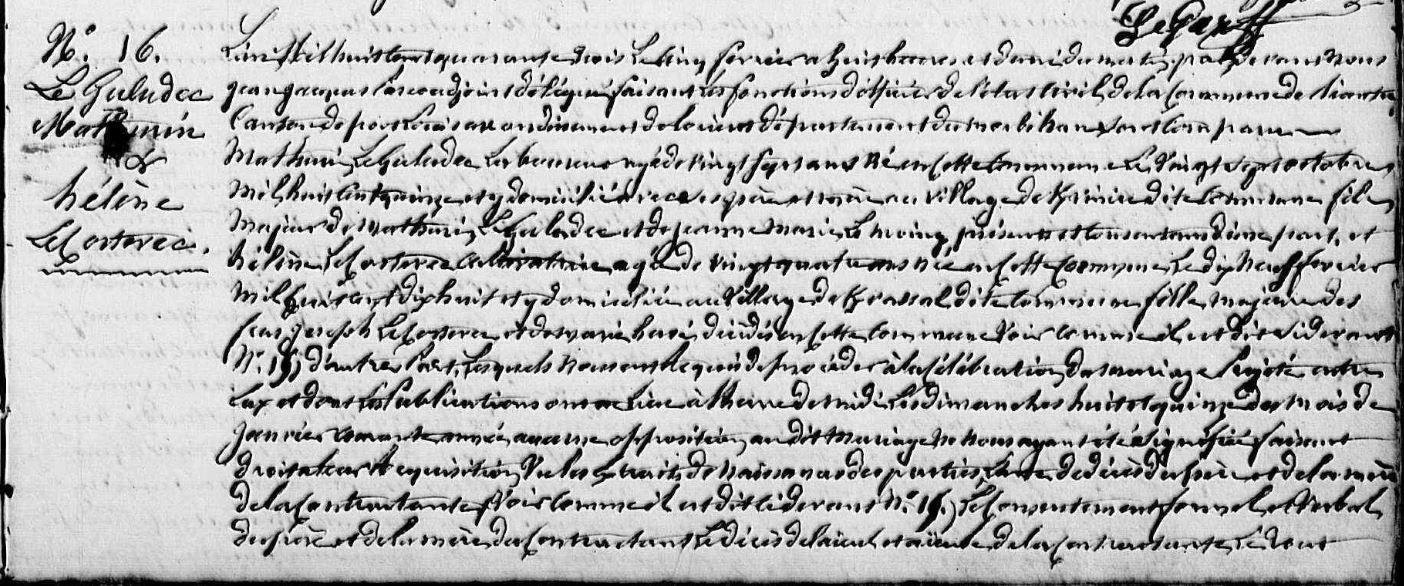 Le Garff
N.° 16.
Le Guludec
Mathurin
&
hélène
Le Corterec.
L'an Mil huit Cent quarante trois Le cinq fevrier a huit heures et demi du matin, par Devant Nous
jean jacques adjoint délégué faisant les fonctions d'officier de l'état Civil, de la Commune de Riantec
Canton de port Louis arrondissement de Lorient département du morbihan Sont Comparus
Mathurin Le Guludec Laboureur agé de vingt Sept ans Né en Cette Commune Le Vingt Sept octobre
Mil huit Cent quinze et y domicilié avec Ses père et mère au village de dite Commune fils
Majeur de Mathurin Le Guludec et de jeanne Marie Le moing, présents et Consentans d'une part, et
hélène Le Corterec Cultivatrice agée de Vingt quatre ans née en Cette Commune Le dix Neuf fevrier
Mil huit Cent dix huit et y domiciliée au Village de dite Commune fille majeure des
feus joseph Le Corterec et de marie décédés en Cette Commune Voir Comme il est dit Ci devant
N.° 15, d'autre Part, Lesquels Nous ont Requis de procéder à la Célébration du mariage Projeté entre
Eux et dont les Publications ont eu Lieu à l'heure de midi Les dimanches huit et quinze du Mois de
Janvier Courante année, aucune opposition au dit Mariage Ne Nous ayant été Signifiée faisant
droit à Leur Requisition, Vu les Extraits de Naissances des parties, de décès du père et de la mère
de la Contractante (Voir Comme il est dit Ci devant N.° 15.) Le Consentement formel et Verbal
du père et de la mère du Contractant Le décès de l'aieul et aieule de la Contractante, Le Tout